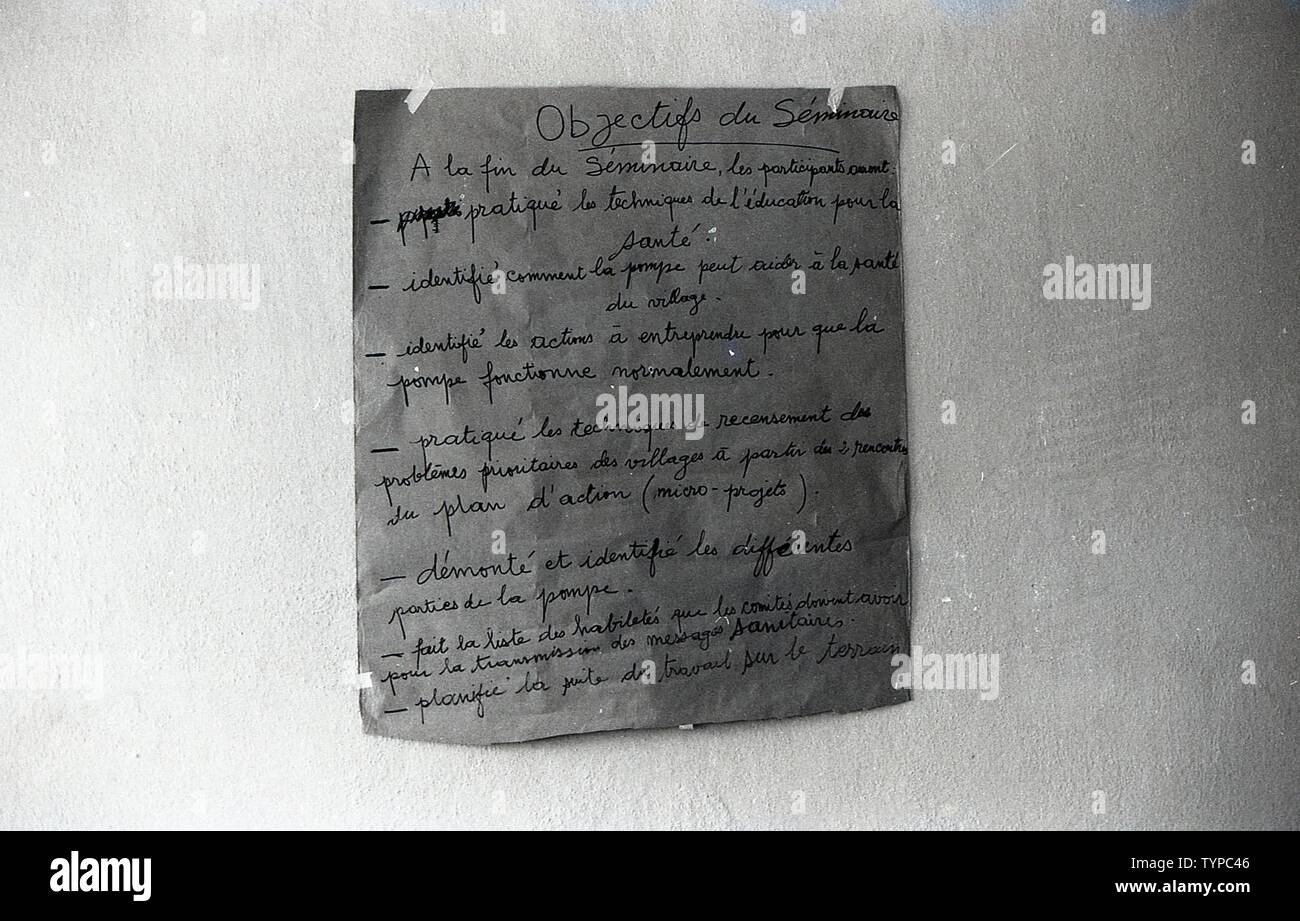 Objectifs du Séminaire
A la fin du Séminaire, les participants auront:
— pratiqué les techniques de l'éducation pour la
santé.
— identifié comment la pompe peut aider à la santé
du village.
— identifié les actions à entreprendre pour que la
pompe fonctionne normalement.
— pratiqué les techniques de recensement des
problèmes prioritaires des villages à partir des 2 rencontres
du plan d'action (micro-projets).
— démonté et identifié les différentes
parties de la pompe.
— fait la liste des habiletés que les comités doivent avoir
pour la transmission des messages sanitaires.
— planifié la suite du travail sur le terrain
alamy
a
alamy
Image ID: TYPC46
www.alamy.com